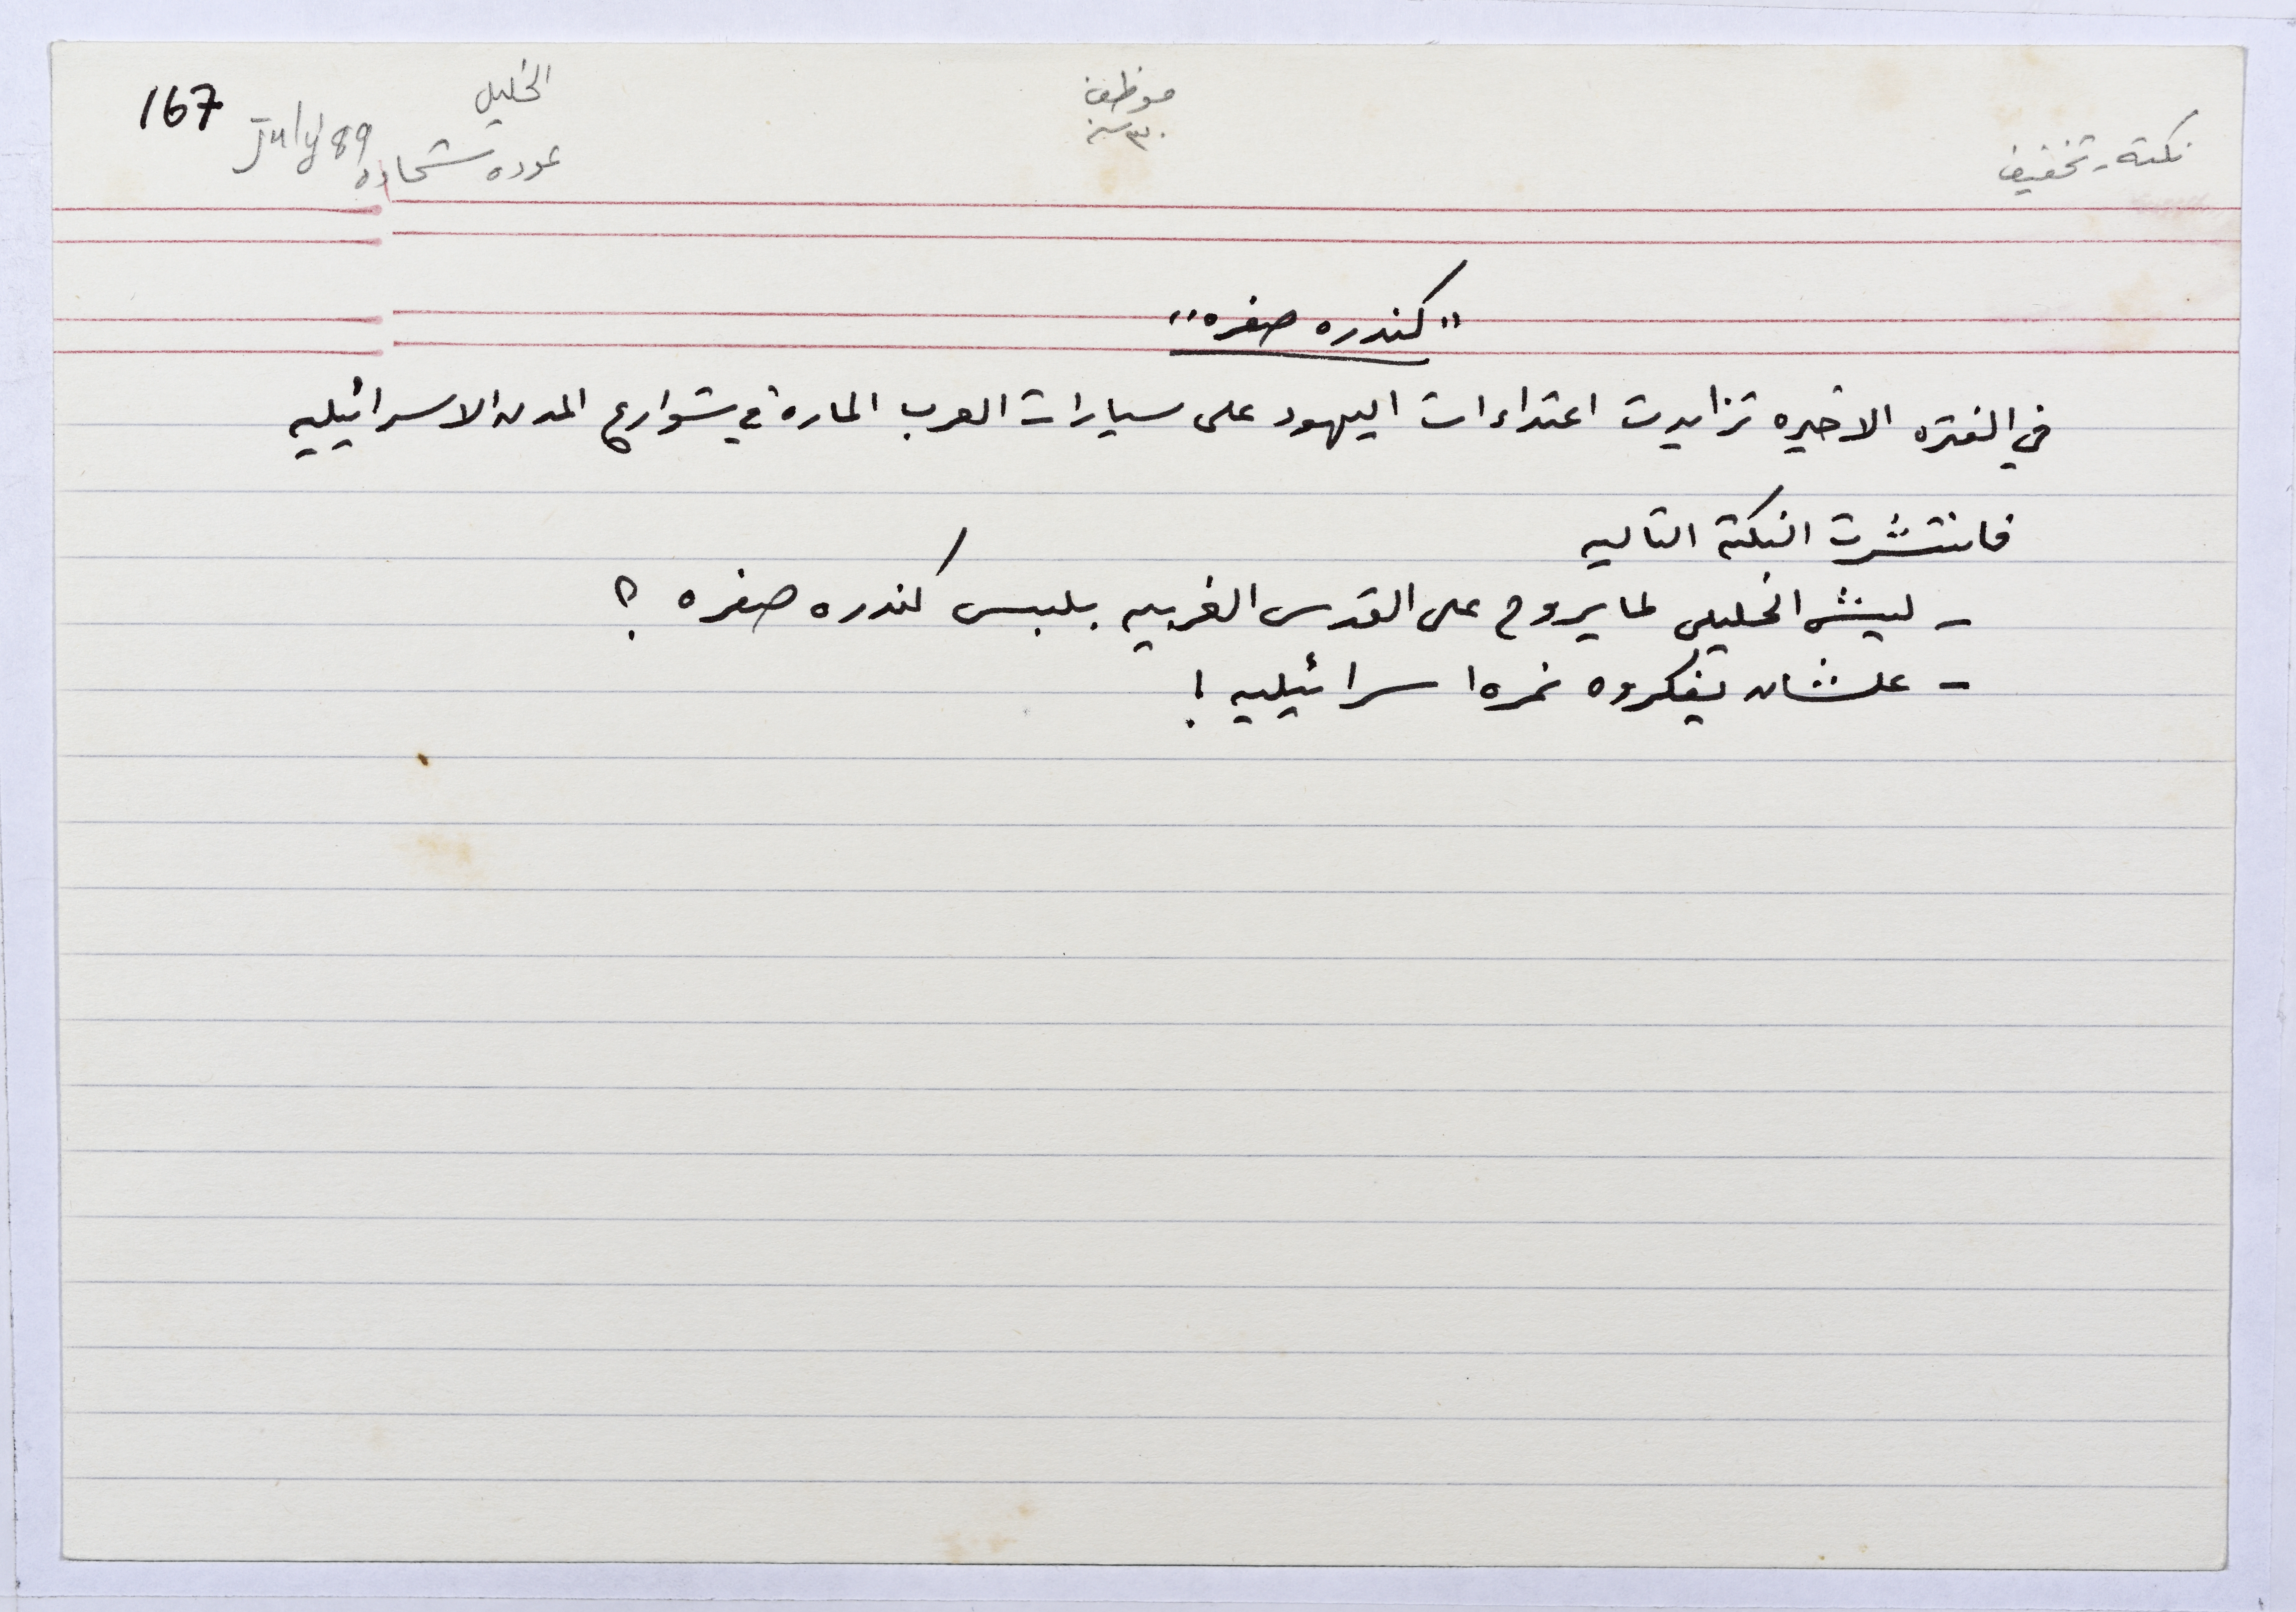 167
July 89
الخليل
عوده شحاده
موظف
٣٠ سنة
نكته - تخفيف
"كندره صفره"
في الفتره الاخيره تزايدت اعتداءات اليهود على سيارات العرب الماره في شوارع المدن الاسرائيليه
فانتشرت النكته التاليه
- ليش الخليلي لما يروح على القدس الغربيه بلبس كندره صفره ؟
- علشان يفكروه نمره اسرائيليه !